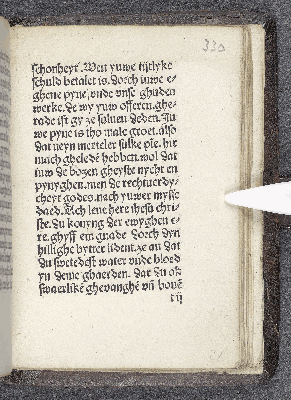 330
schonheyt. Wen yuwe tijtlyke
schuld betalet is. dorch iuwe e-
ghene pyne, vnde vnse ghuden
werke. de wy yuw offeren. ghe-
rade ist gy ze soluen deden. Ju
we pyne is tho male groet. also
dat neyn merteler sulke pie. hir
mach ghelede hebben. wol dat
iuw de bozen gheyste nycht en
pynyghen. men de rechtuerdy-
cheyt godes. nach yuwer mysse
daed. Ach leue here ihesu chri-
ste. du konyng der ewyghen e-
re. ghyff em gnade dorch dyn
hillighe bytter lident. ze an dat
du swetedest water vnde bloed
yn dewe gbaerden. dat du ok
swaerlikē ghevanghē vn̄ bouē
t ij